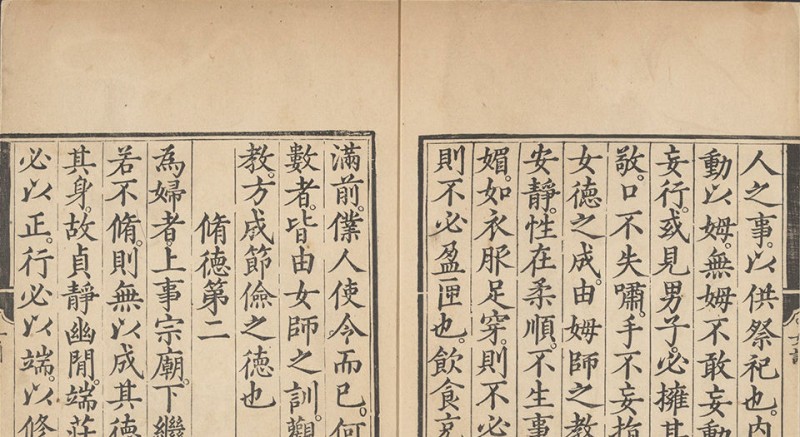 人之事。以供祭祀也。内
動以姆。無姆不敢妄動
妄行。或見男子。必擁其
敬。口不失嘯。手不妄指
女德之成。由姆師之教
安靜。性在柔順。不生事
媚。如衣服足穿。則不必
則不必盈匣也。飲食充
滿前。僕人使令而已。何
數者。皆由女師之訓。觀
教。方成節儉之德也
脩德第二
為婦者。上事宗廟。下繼
若不脩。則無以成其德
其身。故貞靜幽閒。端莊
必以正。行必以端。以修